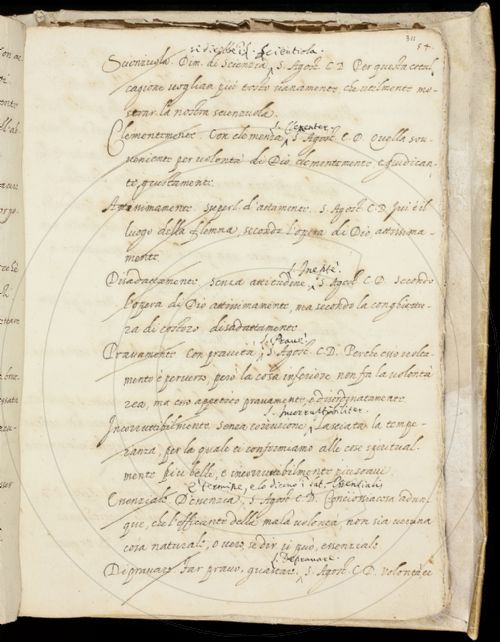 311
54
si dice lat. Scientiola.
Scienzuola. Dim. di Scienzia, S. Agost. C. D. Per questa cotal
cagione vogliam più tosto vanamente, che utilmente mo-
strar la nostra scienzuola.
l. Clementer.
Clementemente. Con clemenza, S. Agost. C. D. Quella sou-
veniente per volontà di Dio clementemente e giudican-
te giustamente.
Attissimamente. superl. d'attamente. S. Agost. C. D. Qui è il
luogo della femna, secondo l'opera di Dio attissima-
mente
l. Ineptè.
Disadattamente. senza attitudine, S. Agost. C. D. Secondo
l'opera di Dio attissimamente, ma secondo la conghiettu-
ra di costoro disadattamente
l. Pravè
Pravamente. Con pravità, S. Agost. C. D. Perche esso volta-
mento è perverso, però la cosa inferiore non fa la volontà
rea, ma esso appetere pravamente, e disordinatamente
l. Incorruptibiliter.
Incorruttibilmente. senza corruzione, Lasciata la tempe-
ranza, per la quale ci conformiamo alle cose spiritual-
mente più belle, e incorruttibilmente più soavi.
è termine, e lo dicono i lat. Essentialis
Essenziale. D'essenzia, S. Agost. C. D. Conciossiacosa adun-
que, che l'efficiente della mala volontà non sia veruna
cosa naturale, o vero, se dir si può, essenziale
l. Depravare.
Dipravare. Far pravo, guastare. S. Agost. C. D. Volontà è